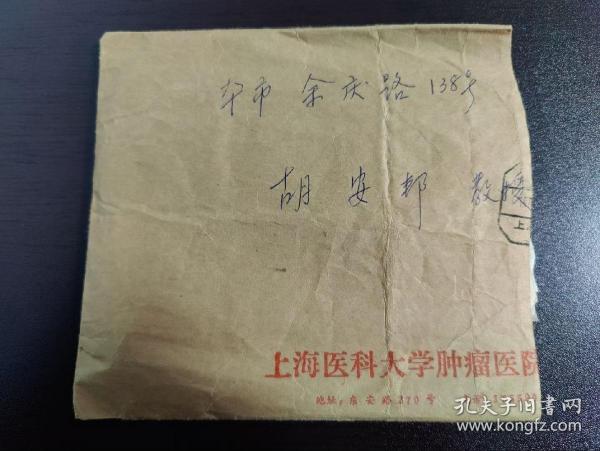 本市 余庆路 138号
胡安邦 教授
上
上海医科大学肿瘤医院
地址：东安路270号
孔夫子旧书网
www.kongfz.com